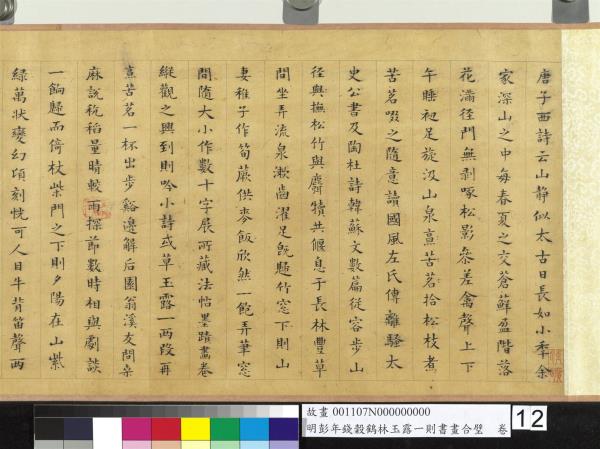 唐子西詩云山靜似太古日長如小季余
家深山之中每春夏之交蒼蘚盈階落
花滿徑門無剥啄松影參差禽聲上下
午睡初足旋汲山泉拾松枝煮
苦茗啜之隨意讀國風左氏傳離騷太
史公書及陶杜詩韓蘇文數篇從容步山
徑與撫松竹與麛犢共偃息于長林豐草
間坐弄流泉漱齒濯足既歸竹窓下則山
妻稚子作筍蕨供麥飯欣然一飽弄筆窓
間隨大小作數十字展所藏法帖墨蹟畫卷
縱觀之興到則吟小詩或草玉露一兩段再
烹苦茗一杯出步谿邊解后園翁溪友問桑
麻說秔稻量晴較雨探節數時相與劇談
一餉歸而倚杖柴門之下則夕陽在山紫
綠萬狀變幻頃刻恍可人目牛背笛聲兩
故畫 001107N000000000
明彭年錢穀鶴林玉露一則書畫合璧 卷
12